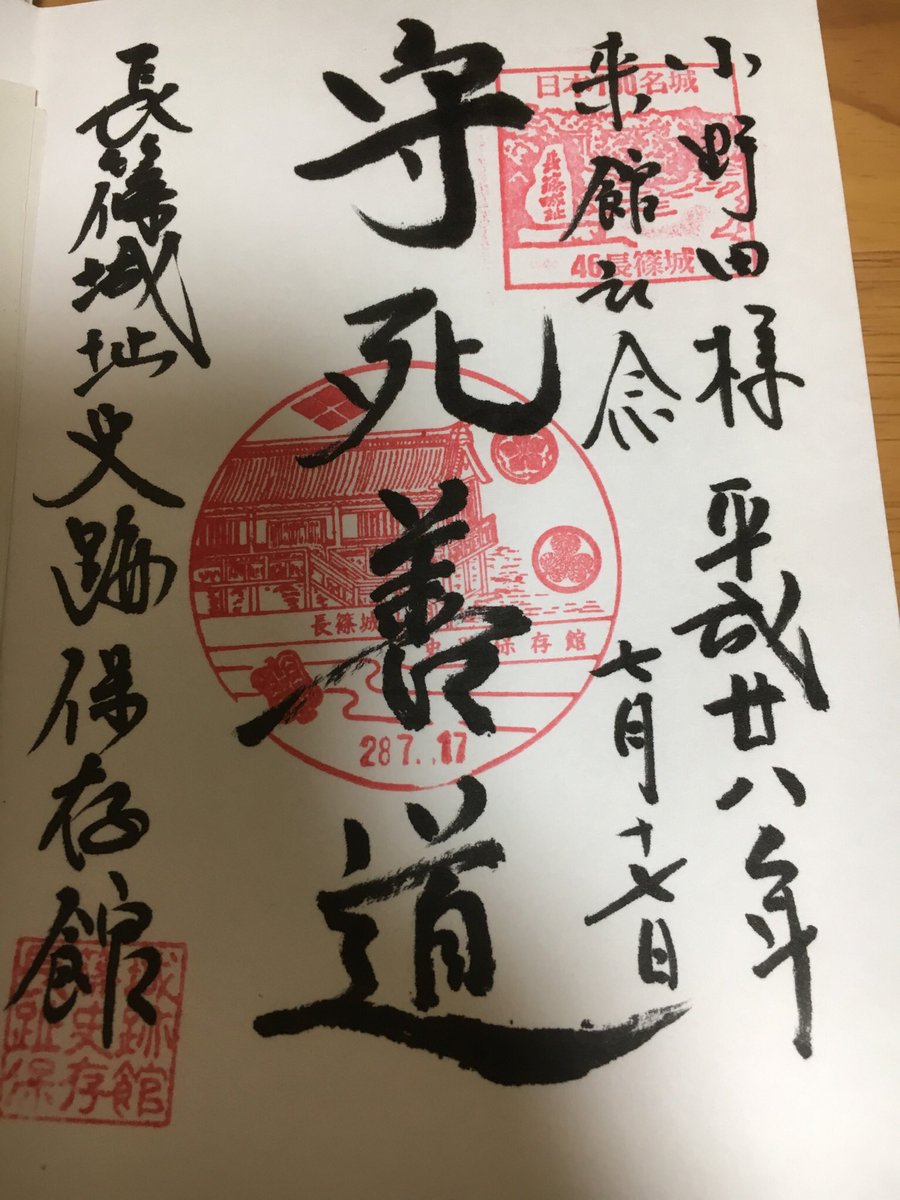 小野田様 平成廿八年
来館記念 七月十七日
守死善道
長篠城址史跡保存館
日本100名城
長篠城址
46長篠城
長篠城 保存館
28 7. 17
城址史跡保存館